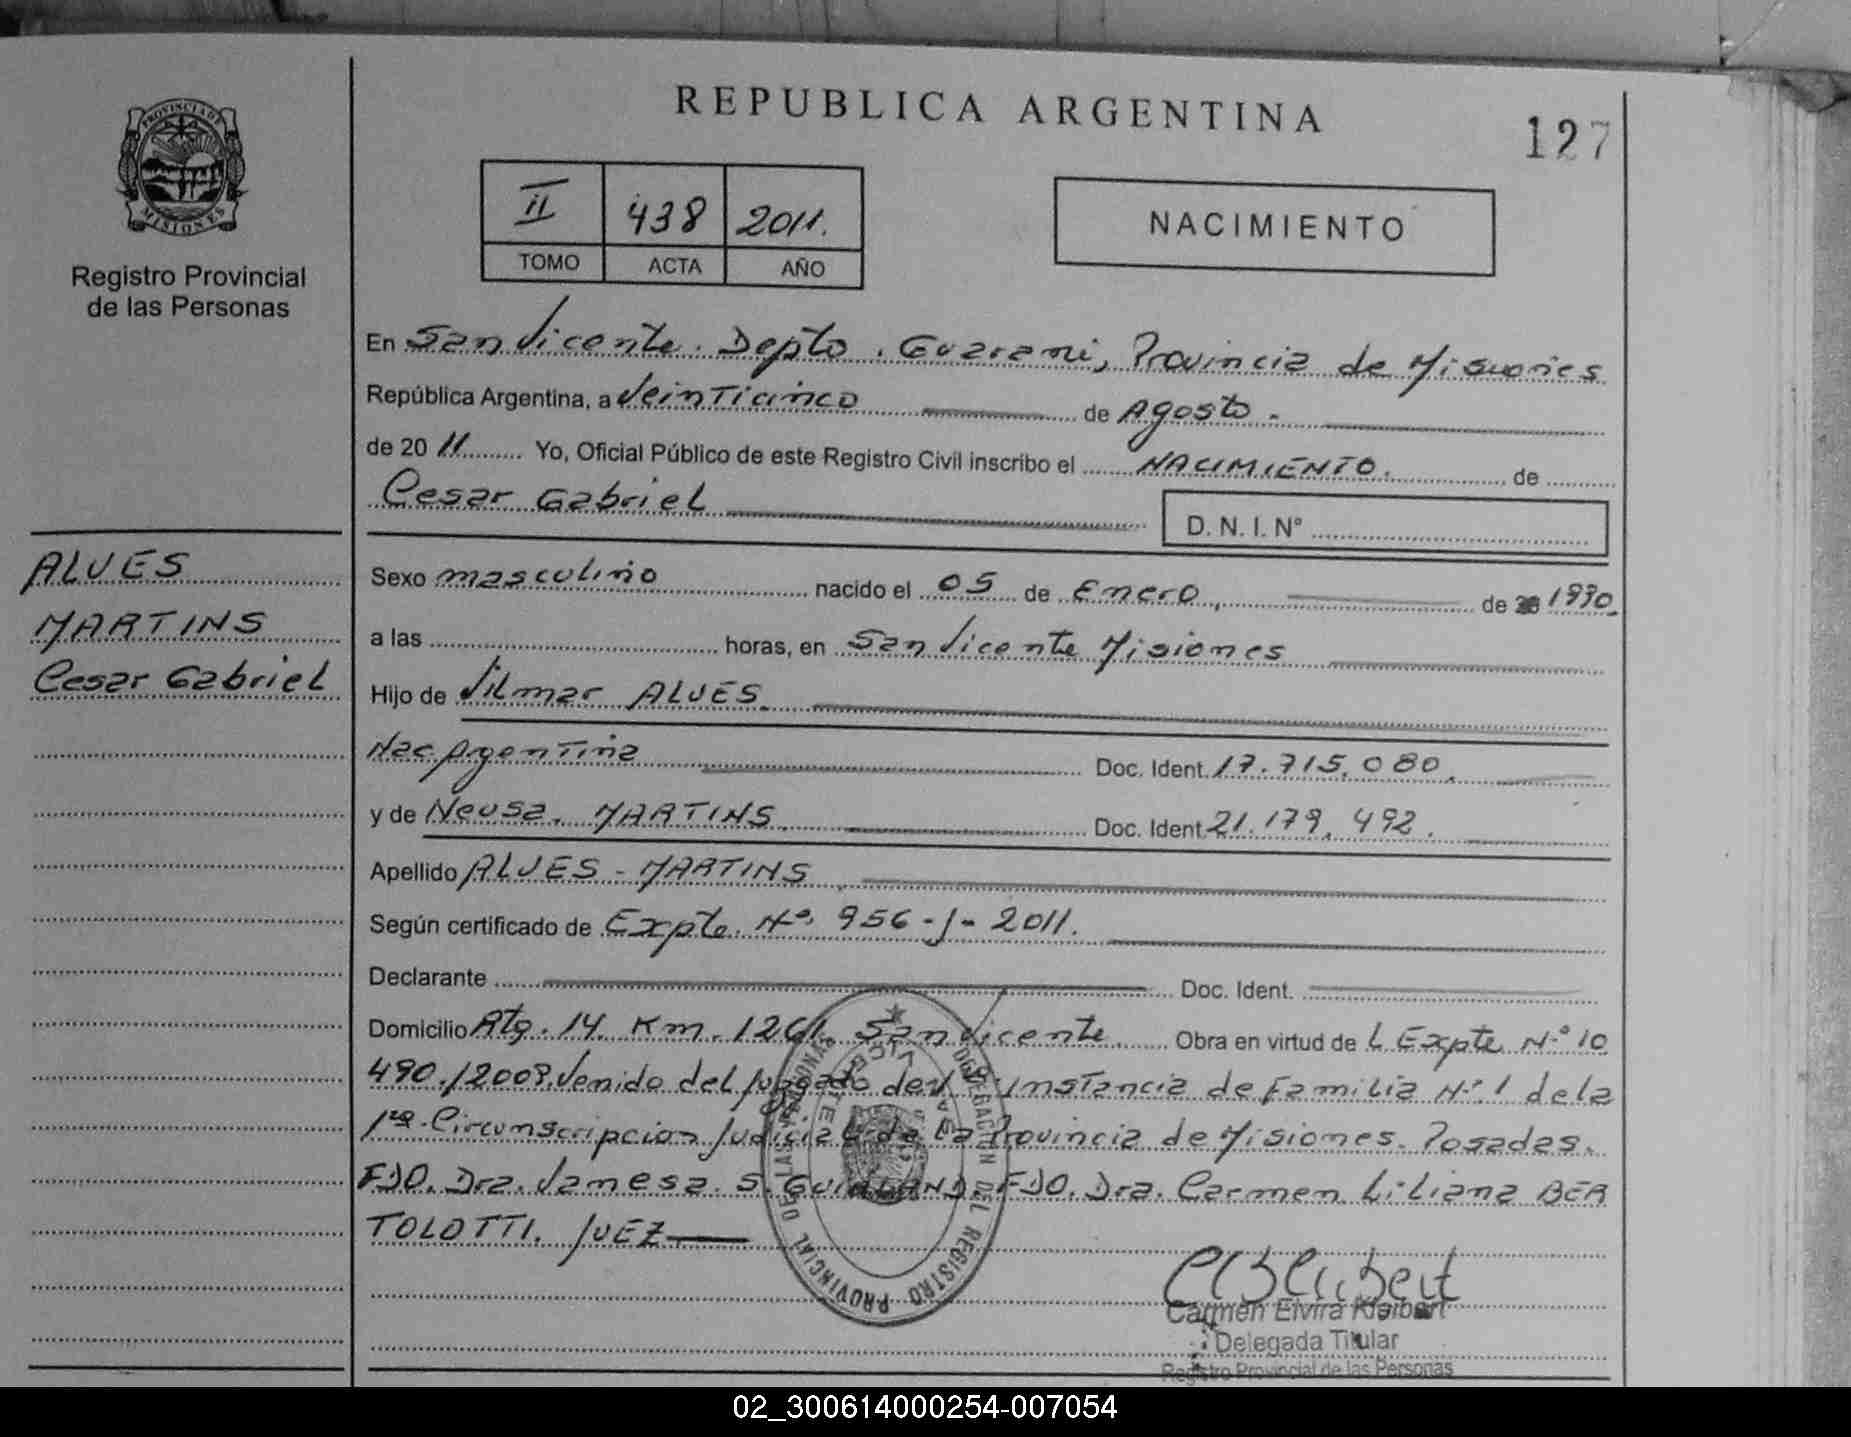 REPUBLICA ARGENTINA
127
PROVINCIA DE
MISIONES
Registro Provincial
de las Personas
II 438 2011.
TOMO ACTA AÑO
NACIMIENTO
En San Vicente. Depto. Guarani, Provincia de Misiones
República Argentina, a Veinticinco de Agosto.
de 20 11 Yo, Oficial Público de este Registro Civil inscribo el NACIMIENTO. de
Cesar Gabriel
D. N. I. N°
ALVES
MARTINS
Cesar Gabriel
Sexo masculino nacido el 05 de Enero, de 1990.
a las horas, en San Vicente Misiones
Hijo de Vilmar ALVES.
Nac Argentina Doc. Ident. 17.715.080.
y de Neusa. MARTINS Doc. Ident. 21.179.492.
Apellido ALVES - MARTINS
Según certificado de Expte. Nº. 956-J-2011.
Declarante Doc. Ident.
Domicilio Rta. 14. Km. 1261. San Vicente. Obra en virtud de L Expte Nº 10
490./2009. Venido del Juzgado de Instancia de Familia Nº. 1 de la
1ra. Circunscripcion Judicial de la Provincia de Misiones. Posadas.
FDO. Dra. Vanesa. S. FDO. Dra. Carmen Liliana BER
TOLOTTI. JUEZ
DELEGACIÓN DEL REGISTRO PROVINCIAL DE LAS PERSONAS
SAN VICENTE
Carmen Elvira Klaibert
Delegada Titular
Registro Provincial de las Personas
02_300614000254-007054